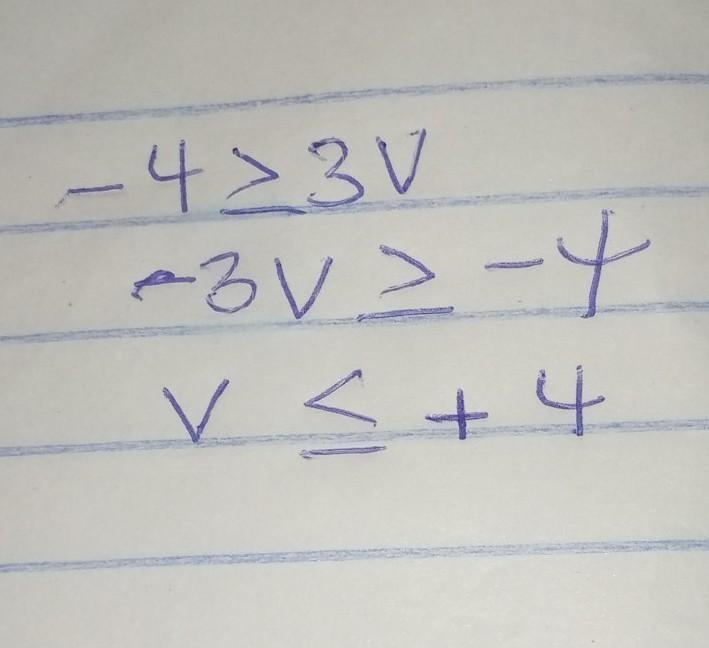 -4 ≥ 3V
-3V ≥ -4
V ≤ +4